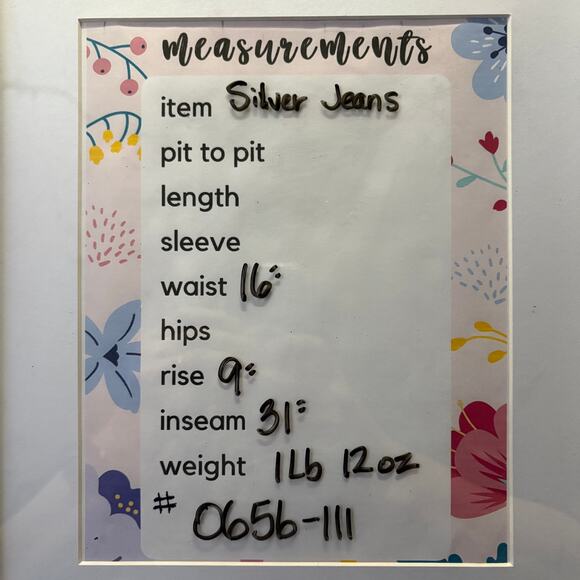 measurements
item Silver Jeans
pit to pit
length
sleeve
waist 16"
hips
rise 9"
inseam 31"
weight 1 Lb 12 oz
# 0656-111